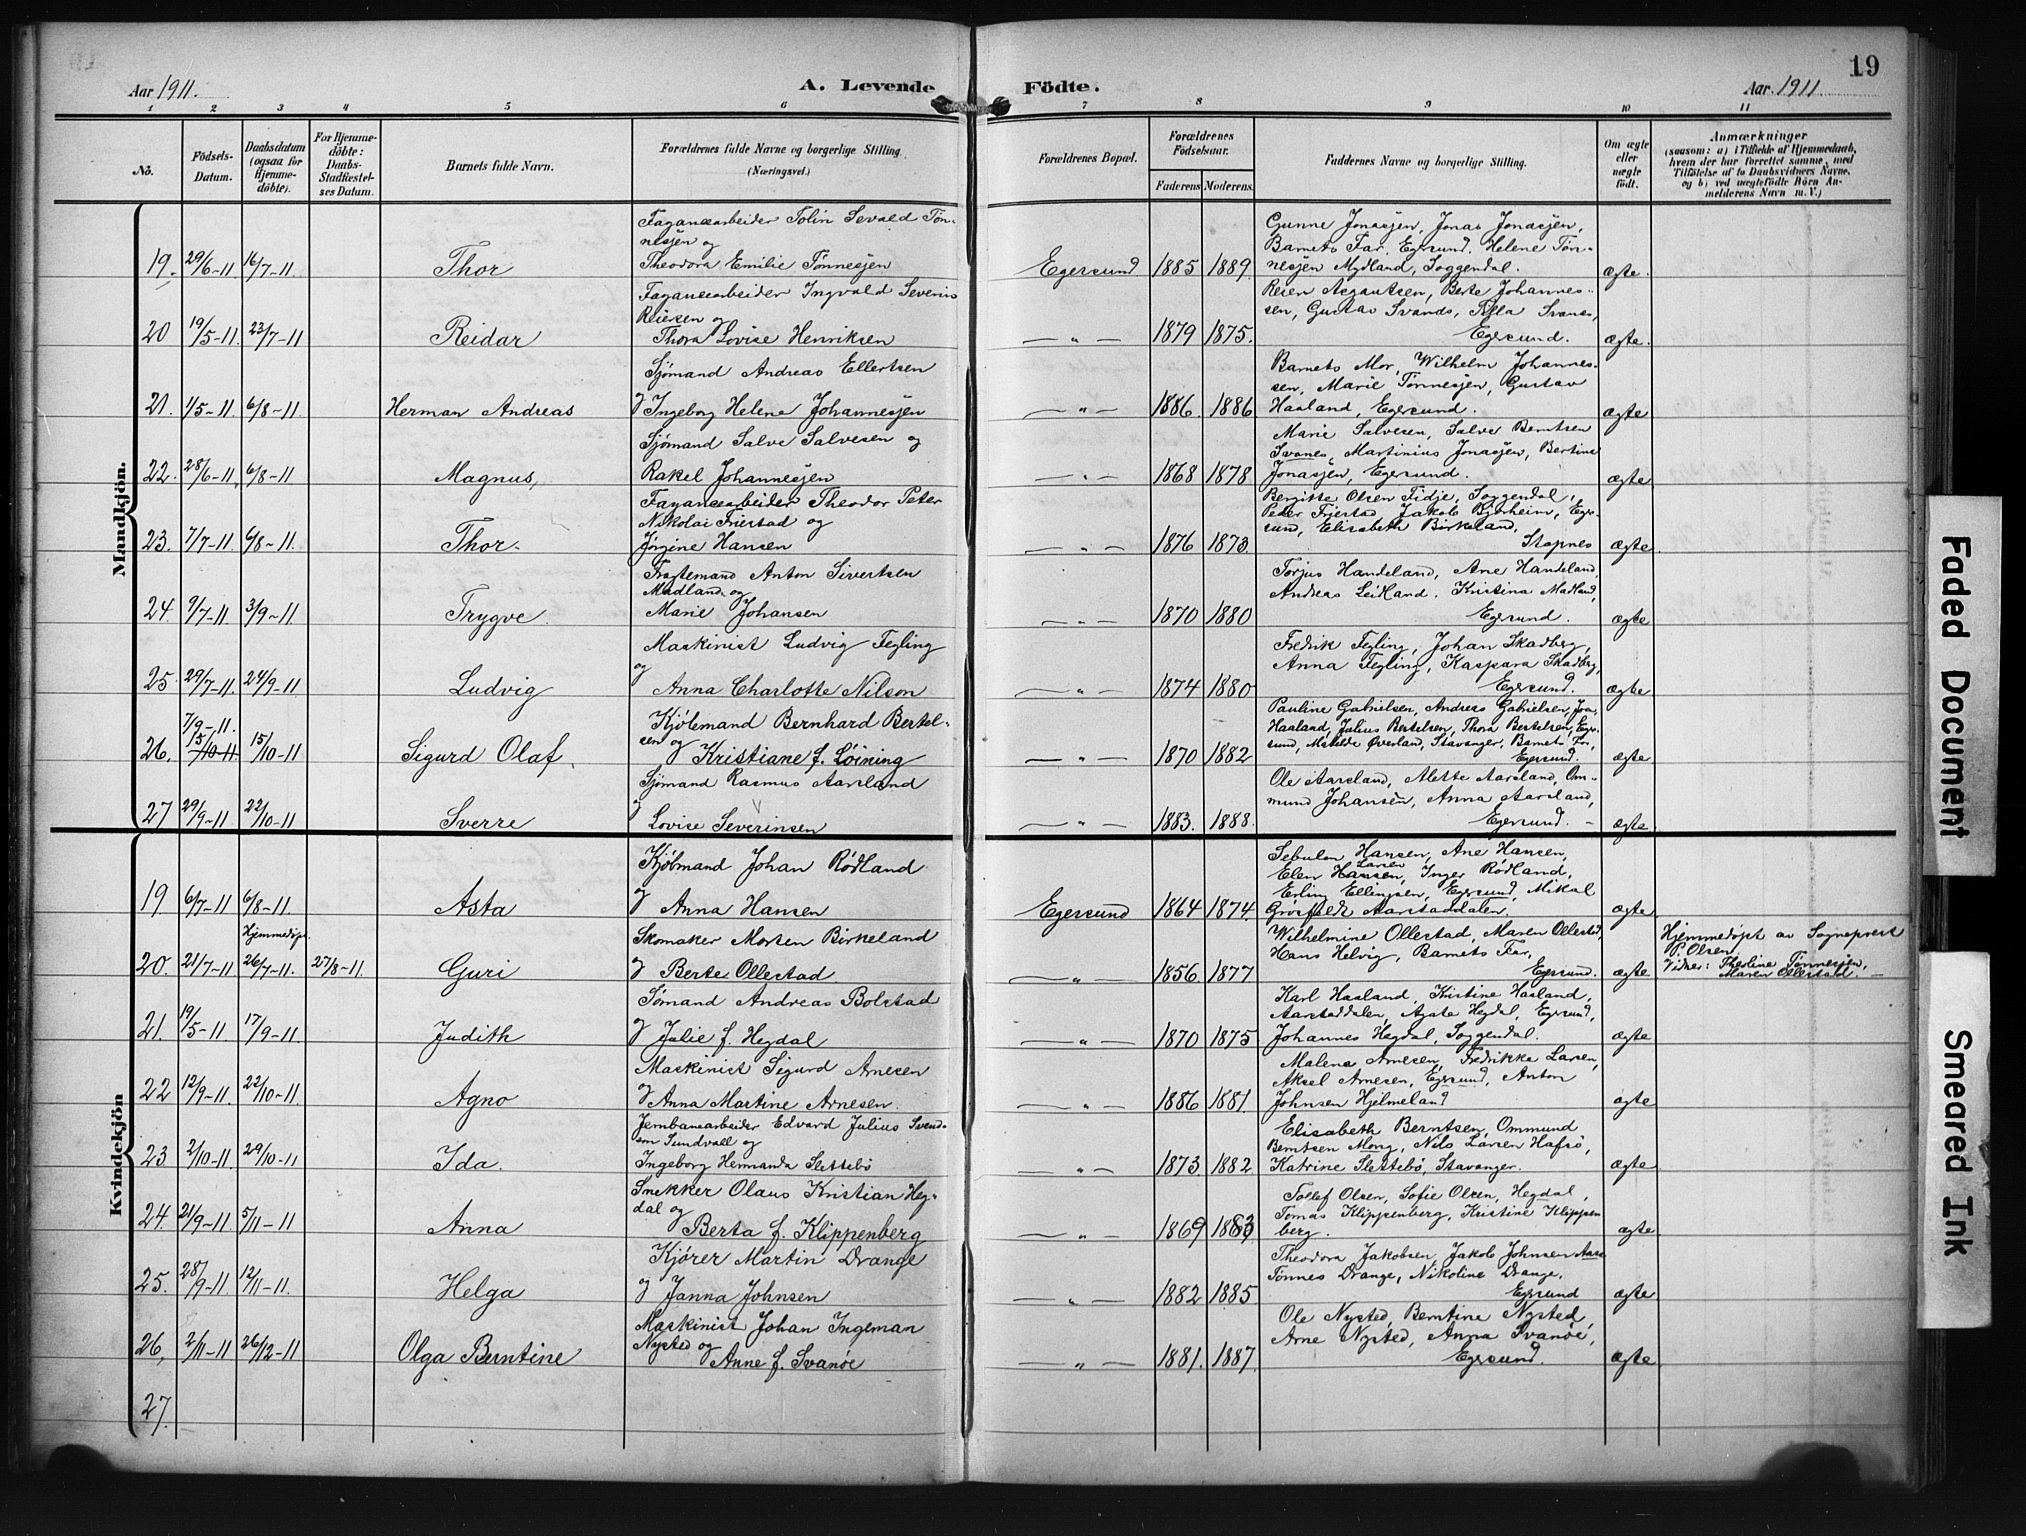 19
Aar 1911.
A. Levende
Födte.
Aar 1911
1 2 3 4 5 6 7 8 9 10 11
No.
Födsels-Datum.
Daabsdatum (ogsaa for Hjemme-döbte).
For Hjemme-döbte: Daabs-Stadfæstel-ses Datum.
Barnets fulde Navn.
Forældrenes fulde Navne og borgerlige Stilling (Næringsvei.)
Forældrenes Bopæl.
Forældrenes Födselsaar.
Faderens Moderens.
Faddernes Navne og borgerlige Stilling.
Om ægte eller uægte födt.
Anmærkninger
(saasom: a) i Tilfælde af Hjemmedaab,
hvem der har forrettet samme, med
Tilföielse af to Daabsvidners Navne,
og b) ved uægtefödte Börn An-
melderens Navn m. V.)
Mandkjön.
19. 29/6-11 16/7-11 Thor
Fayancearbeider Tolin Sevald Tøn-
nesjen og
Theodora Emilie Tønnesjen
Egersund 1885 1889.
Gunne Jonasjen, Jonas Jonasjen,
Barnets Far, Egersund. Helene Tøn-
nesjen Mydland, Soggendal.
ægte.
20 19/5-11 23/7-11 Reidar
Fayancearbeider Ingvald Severin
Reiersen og
Thora Lovise Henriksen
— " — 1879 1875.
Reier Asgautsen, Berte Johannes-
sen, Gustav Svanes, Tilla Svanes,
Egersund.
ægte.
21. 1/5-11 6/8-11 Herman Andreas
Sjømand Andreas Ellertsen
og Ingeborg Helene Johannesjen
— " — 1886 1886
Barnets Mor, Wilhelm Johannes-
sen, Marie Tønnesjen, Gustav
Haaland, Egersund.
ægte
22. 28/6-11, 6/8-11 Magnus,
Sjømand Salve Salvesen og
Rakel Johannesjen
— " — 1868 1878
Marie Salvesen, Salve Berntsen
Svanes, Martinius Jonasjen, Bertine
Jonasjen, Egersund.
ægte
23. 7/7-11 6/8-11. Thor.
Fayancearbeider Theodor Peter
Nikolai Friestad og
Jørgine Hansen
— " — 1876 1873
Bergitte Olsen Fidje, Soggendal,
Peder Friestad, Jakob Bjerheim, Eger-
sund, Elisabeth Birkeland,
Stapnes
ægte.
24. 9/7-11 3/9-11 Trygve.
Fragtemand Anton Sivertsen
Madland og
Marie Johansen
— " — 1870 1880
Torjus Handeland, Ane Handeland,
Andreas Leidland. Kristina Madland,
Egersund.
ægte
25. 29/7-11. 24/9-11 Ludvig
Maskinist Ludvig Fegling
og
Anna Charlotte Nilson
— " — 1874 1880
Fredrik Fegling, Johan Skadberg,
Anna Fegling, Kaspara Skadberg,
Egersund.
ægte
26. 7/9-11. 15/10-11 15/10-11 Sigurd Olaf.
Kjøbmand Bernhard Bertel-
sen og
Kristiane f. Löining
— " — 1870 1882
Pauline Gabrielsen, Andreas Gabrielsen,
Haaland, Julius Bertelsen, Thora Bertelsen, Eger-
sund, Matilde Øverland, Stavanger, Barnets Far,
Egersund.
ægte
27 29/9-11 22/10-11 Sverre
Sjømand Rasmus Aarsland
og
Lovise Severinsen
— " — 1883. 1888.
Ole Aarsland, Mette Aarsland, Om-
mund Johansen, Anna Aarsland,
Egersund. —
ægte
Kvindekjön
19 6/7-11 6/8-11. Asta
Kjøbmand Johan Rødland
og Anna Hansen
Egersund 1864 1874.
Sebulon Hansen, Ane Hansen,
Larsen
Elen Hansen, Inger Rødland,
Erling Ellingsen, Egersund, Mikal
Grøsfeldt Aarstaddalen.
ægte
20. 21/7-11 Hjemmedøpt. 26/7-11. 27/8-11. Guri
Skomaker Morten Birkeland
og Berte Ollestad.
— " — 1856. 1877
Wilhelmine Ollestad, Maren Ollestad,
Hans Helvig, Barnets Far,
Egersund.
ægte
Hjemmedøpt av Sogneprest
P. Olsen,
Vidner: Theoline Tønnesjen,
Maren Ollestad. —
21. 19/5-11. 17/9-11. Judith
Sømand Andreas Bolstad
og Julie f. Hegdal
— " — 1870 1875
Karl Haaland, Kristine Haaland,
Aarstaddalen, Agate Hegdal, Egersund,
Johannes Hegdal, Soggendal.
ægte
22 12/9-11. 22/10-11. Agno
Maskinist Sigurd Arnesen
og Anna Martine Arnesen.
— " — 1886 1881
Malena Arnesen, Fredrikke Larsen,
Aksel Arnesen, Egersund, Anton
Johnsen Hjelmeland
ægte
23 2/10-11. 29/10-11 Ida.
Jernbanearbeider Edvard Julius Svend-
sen Sundvall og
Ingeborg Hermanda Slettebø
— " — 1873 1882
Elisabeth Berntsen, Ommund
Berntsen Mong, Nils Larsen Hafsø,
Katrine Slettebø, Stavanger.
ægte
24. 21/9-11 5/11-11 Anna
Snekker Olaus Kristian Heg-
dal og
Berta f. Klippenberg
— " — 1869 1883
Tollef Olsen, Sofie Olsen, Hegdal,
Tomas Klippenberg, Kristine Klippen
berg.
ægte
25. 28/9-11. 12/11-11. Helga
Kjører Martin Drange
og Janna Johnsen
— " — 1882 1885
Theodora Jakobsen, Jakob Johnsen
Tønnes Drange, Nikoline Drange,
Egersund
ægte
26, 2/11-11 26/12-11 Olga Berntine
Maskinist Johan Ingeman
Nysted og
Anne f. Svanøe
— " — 1881. 1887.
Ole Nysted, Berntine Nysted,
Arne Nysted, Anna Svanøe,
Egersund.
ægte
27.
Faded Document
Smeared Ink